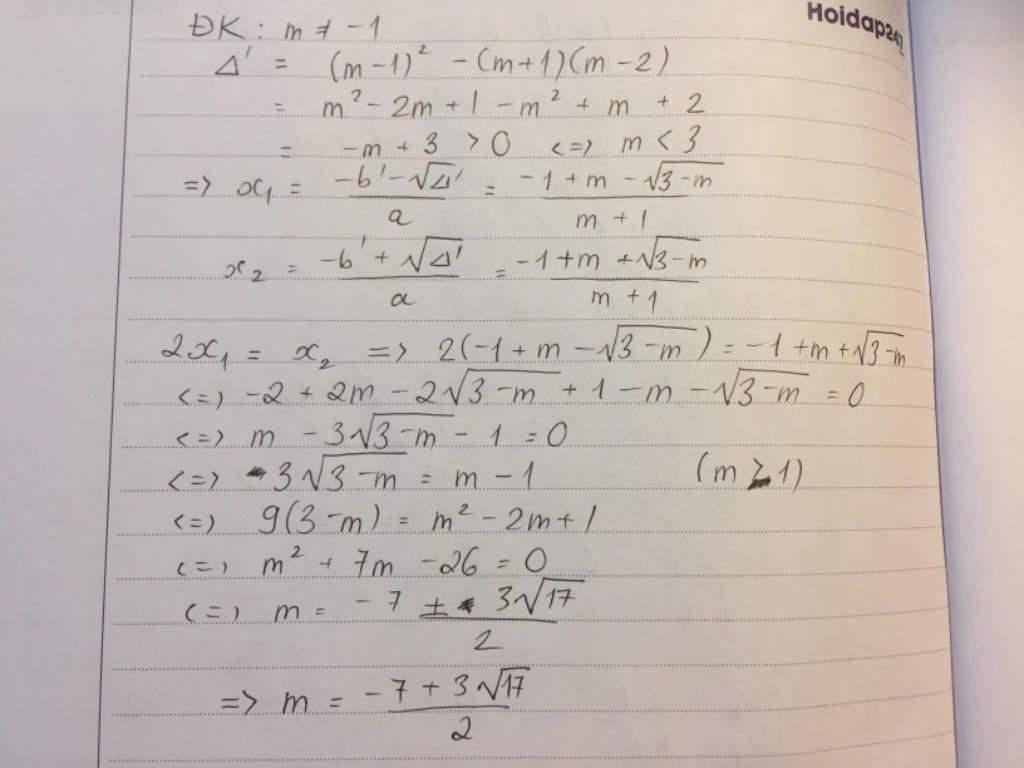 Hoidap247
ĐK: m ≠ -1
Δ' = (m-1)² - (m+1)(m-2)
= m² - 2m + 1 - m² + m + 2
= -m + 3 > 0 <=> m < 3
=> x₁ = (-b' - √Δ')/a = (-1 + m - √(3-m))/(m+1)
x₂ = (-b' + √Δ')/a = (-1 + m + √(3-m))/(m+1)
2x₁ = x₂ => 2(-1 + m - √(3-m)) = -1 + m + √(3-m)
<=> -2 + 2m - 2√(3-m) + 1 - m - √(3-m) = 0
<=> m - 3√(3-m) - 1 = 0
<=> 3√(3-m) = m - 1 (m ≥ 1)
<=> 9(3-m) = m² - 2m + 1
<=> m² + 7m - 26 = 0
<=> m = (-7 ± 3√17)/2
=> m = (-7 + 3√17)/2